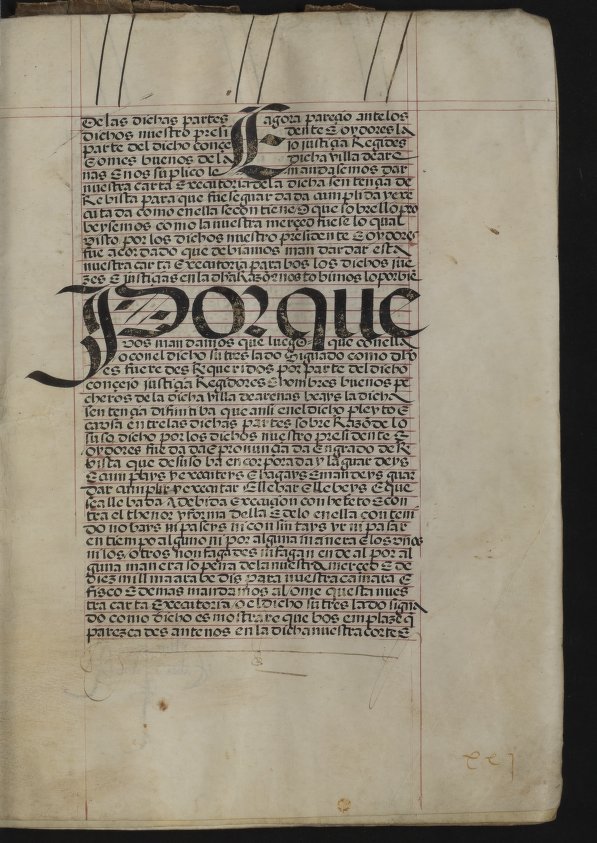 De las dichas partes E agora pareçio ante los
dichos nuestro presidente E oydores la
parte del dicho conçejo justiçia Regidores
E omes buenos de la dicha villa de are
nas E nos suplico le mandasemos dar
nuestra carta Executoria de la dicha sentençia de
Rebista para que fuese guardada cunplida y exe
cutada como en ella se contiene O que sobre llo pro
beysemos como la nuestra merçed fuese lo qual
visto por los dichos nuestro presidente E oydores
fue acordado que debiamos mandar dar esta
nuestra carta Executoria para bos los dichos jue
zes E justiçias en la dha Razon E nos tobimos lo por bie
Por que
Vos mandamos que luego que con ella
o con el dicho su treslado Signado como dho
es fueredes Requeridos por parte del dicho
conçejo justiçia Regidores E hombres buenos pe
cheros de la dicha villa de arenas beays la dicha
sentençia difinitiba que ansi en el dicho pleyto E
cavsa entre las dichas partes sobre Razon de lo
suso dicho por los dichos nuestro presidente E
oydores fue dada E pronunçiada En grado de Re
bista que de suso ba encorporada y la guardeys
E cunplays y executeys E hagays E mandeys guar
dar cunplir y executar E llebar E llebeys E que
sea llebada A debida Execuçion con hefeto E con
tra el thenor y forma della E de lo en ella conteni
do no bays ni paseys ni consintays yr ni pasar
en tiempo alguno ni por alguna manera E los vnos
ni los otros non fagades ni fagan en de al por al
guna manera so pena de la nuestra merçed E de
diez mill maarabedis para nuestra camara E
fisco E demas mandamos al ome que esta nues
tra carta Executoria o el dicho su treslado signa
do como dicho es mostrare que bos emplaze q
parezcades ante nos en la dicha nuestra corte E